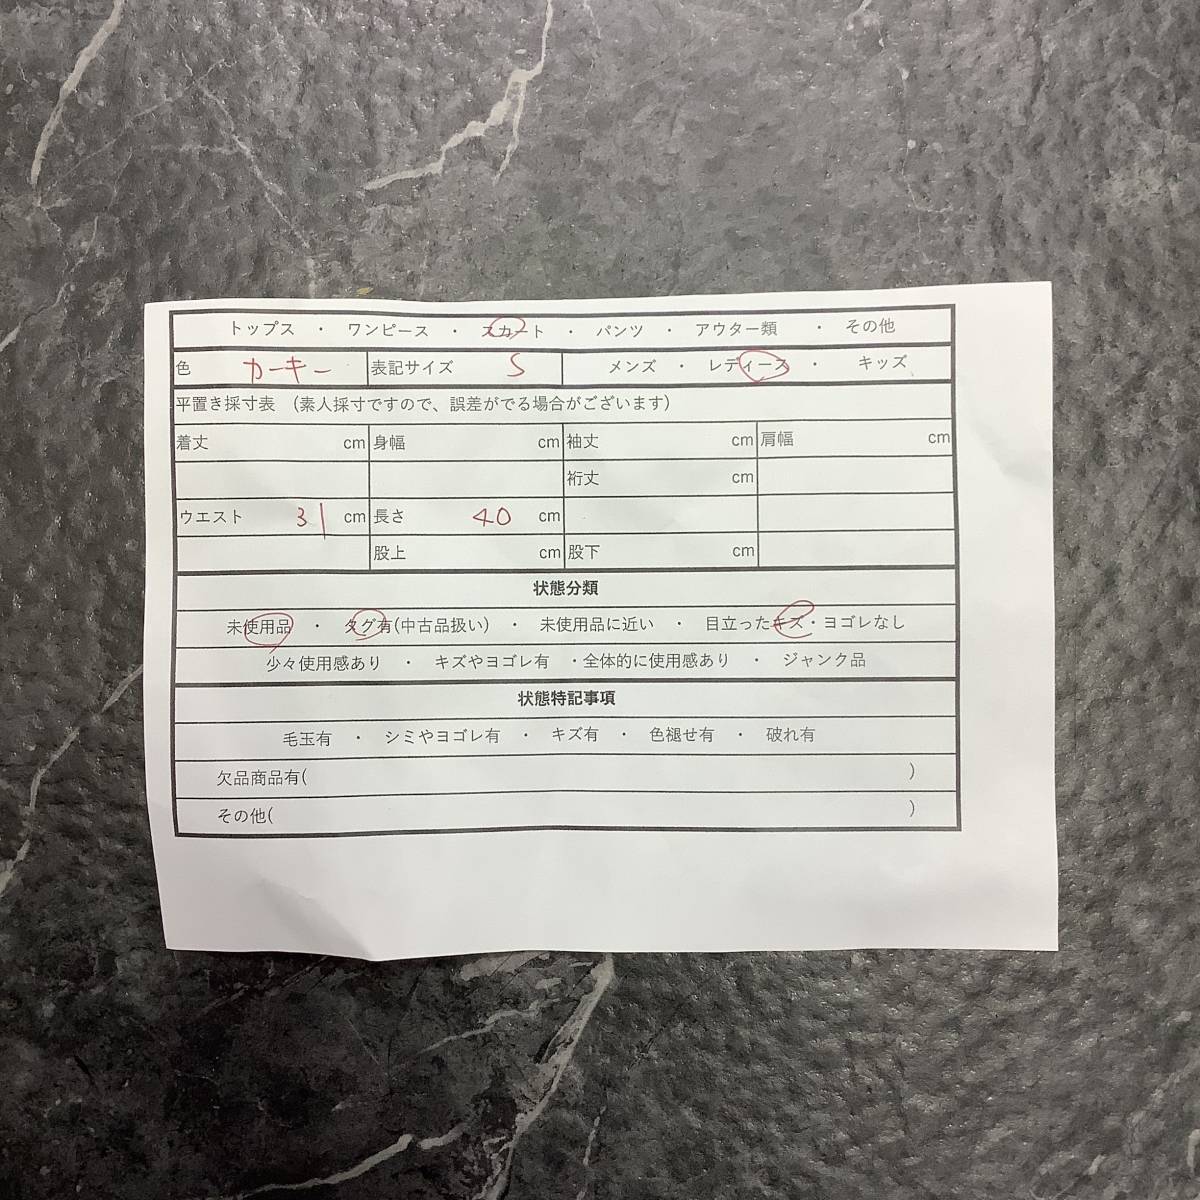 トップス ・ ワンピース ・ スカート ・ パンツ ・ アウター類 ・ その他
色 カーキー 表記サイズ S メンズ ・ レディース ・ キッズ
平置き採寸表 (素人採寸ですので、誤差がでる場合がございます)
着丈 cm 身幅 cm 袖丈 cm 肩幅 cm
裄丈 cm
ウエスト 31 cm 長さ 40 cm
股上 cm 股下 cm
状態分類
未使用品 ・ タグ有(中古品扱い) ・ 未使用品に近い ・ 目立ったキズ・ヨゴレなし
少々使用感あり ・ キズやヨゴレ有 ・全体的に使用感あり ・ ジャンク品
状態特記事項
毛玉有 ・ シミやヨゴレ有 ・ キズ有 ・ 色褪せ有 ・ 破れ有
欠品商品有( )
その他( )